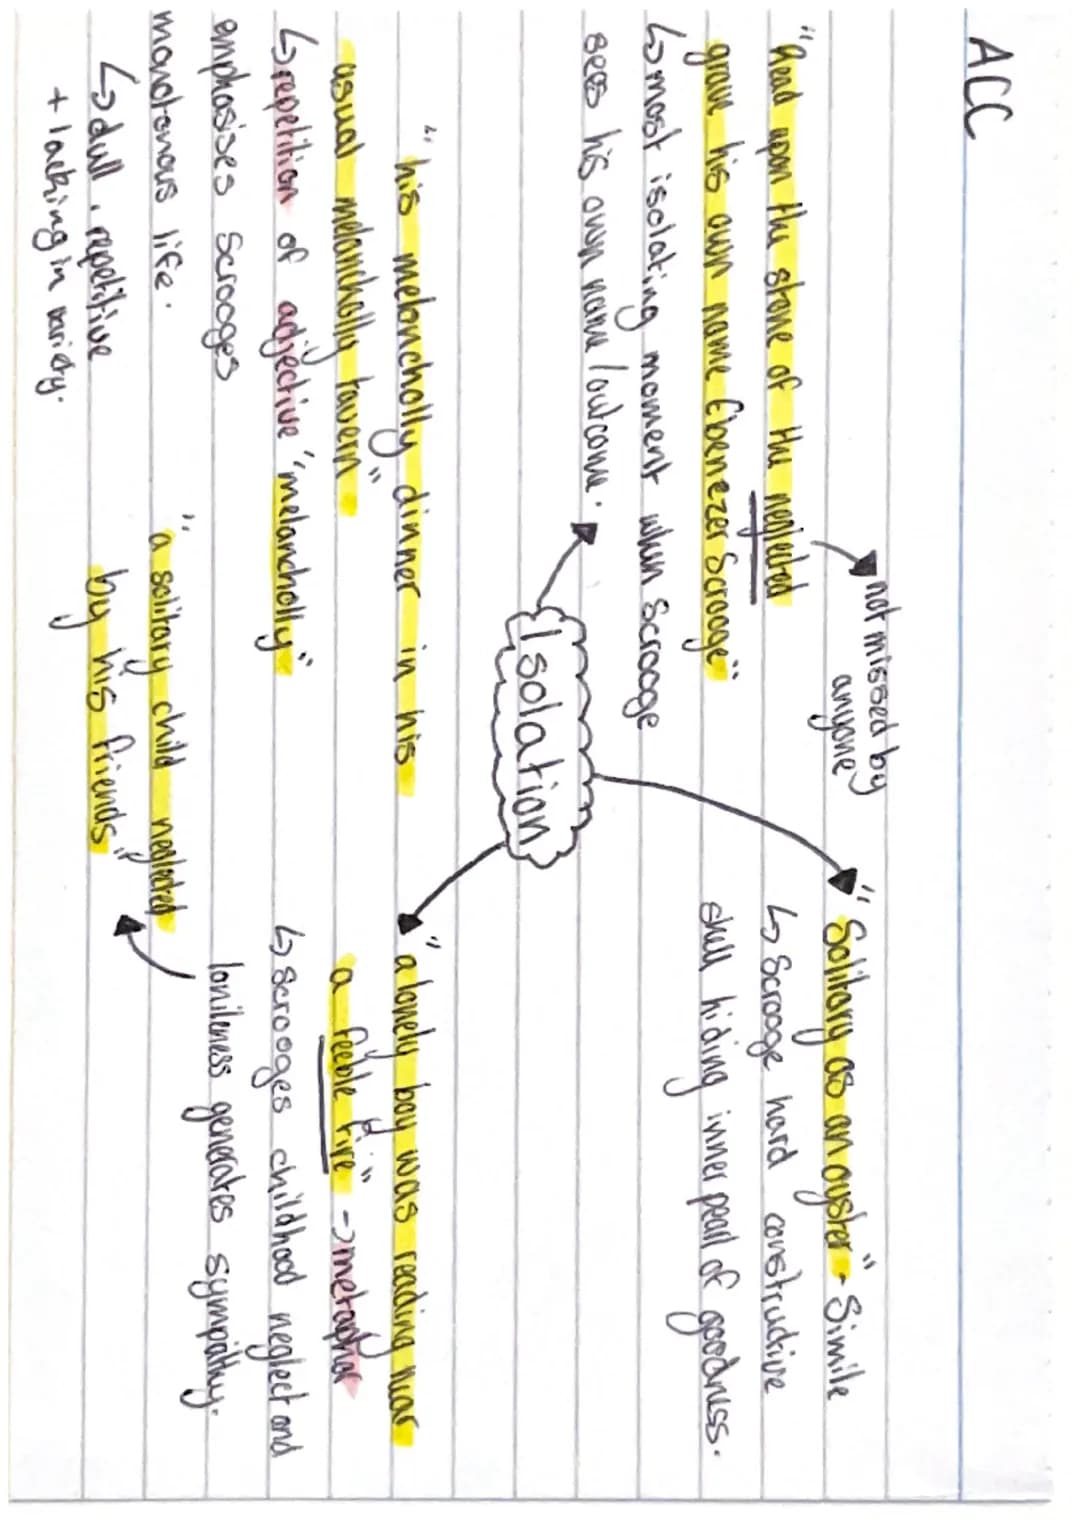 ACC
"Read upon the stone of the neglected
grave his own name Ebenezer Scrooge"
↳ most isolating moment when Scrooge
sees his own name / outcome.
not missed by
anyone
"Solitary as an oyster" - Simile
↳ Scrooge hard constructive
shell hiding inner pearl of goodness.
Isolation
"his meloncholly dinner in his
asual melancholly tavern"
↳ repetition of adjective "melancholly"
emphasises Scrooges
monotonous life.
↳ dull, repetitive
+ lacking in variety.
"a lonely boy was reading near
a feeble fire" -> metaphor
↳ scrooges childhood neglect and
lonileness generates sympathy.
"a solitary child neglected
by his friends"